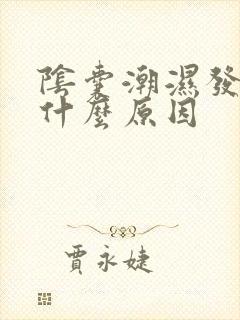 陰囊潮濕發
什麼原因
賈永婕